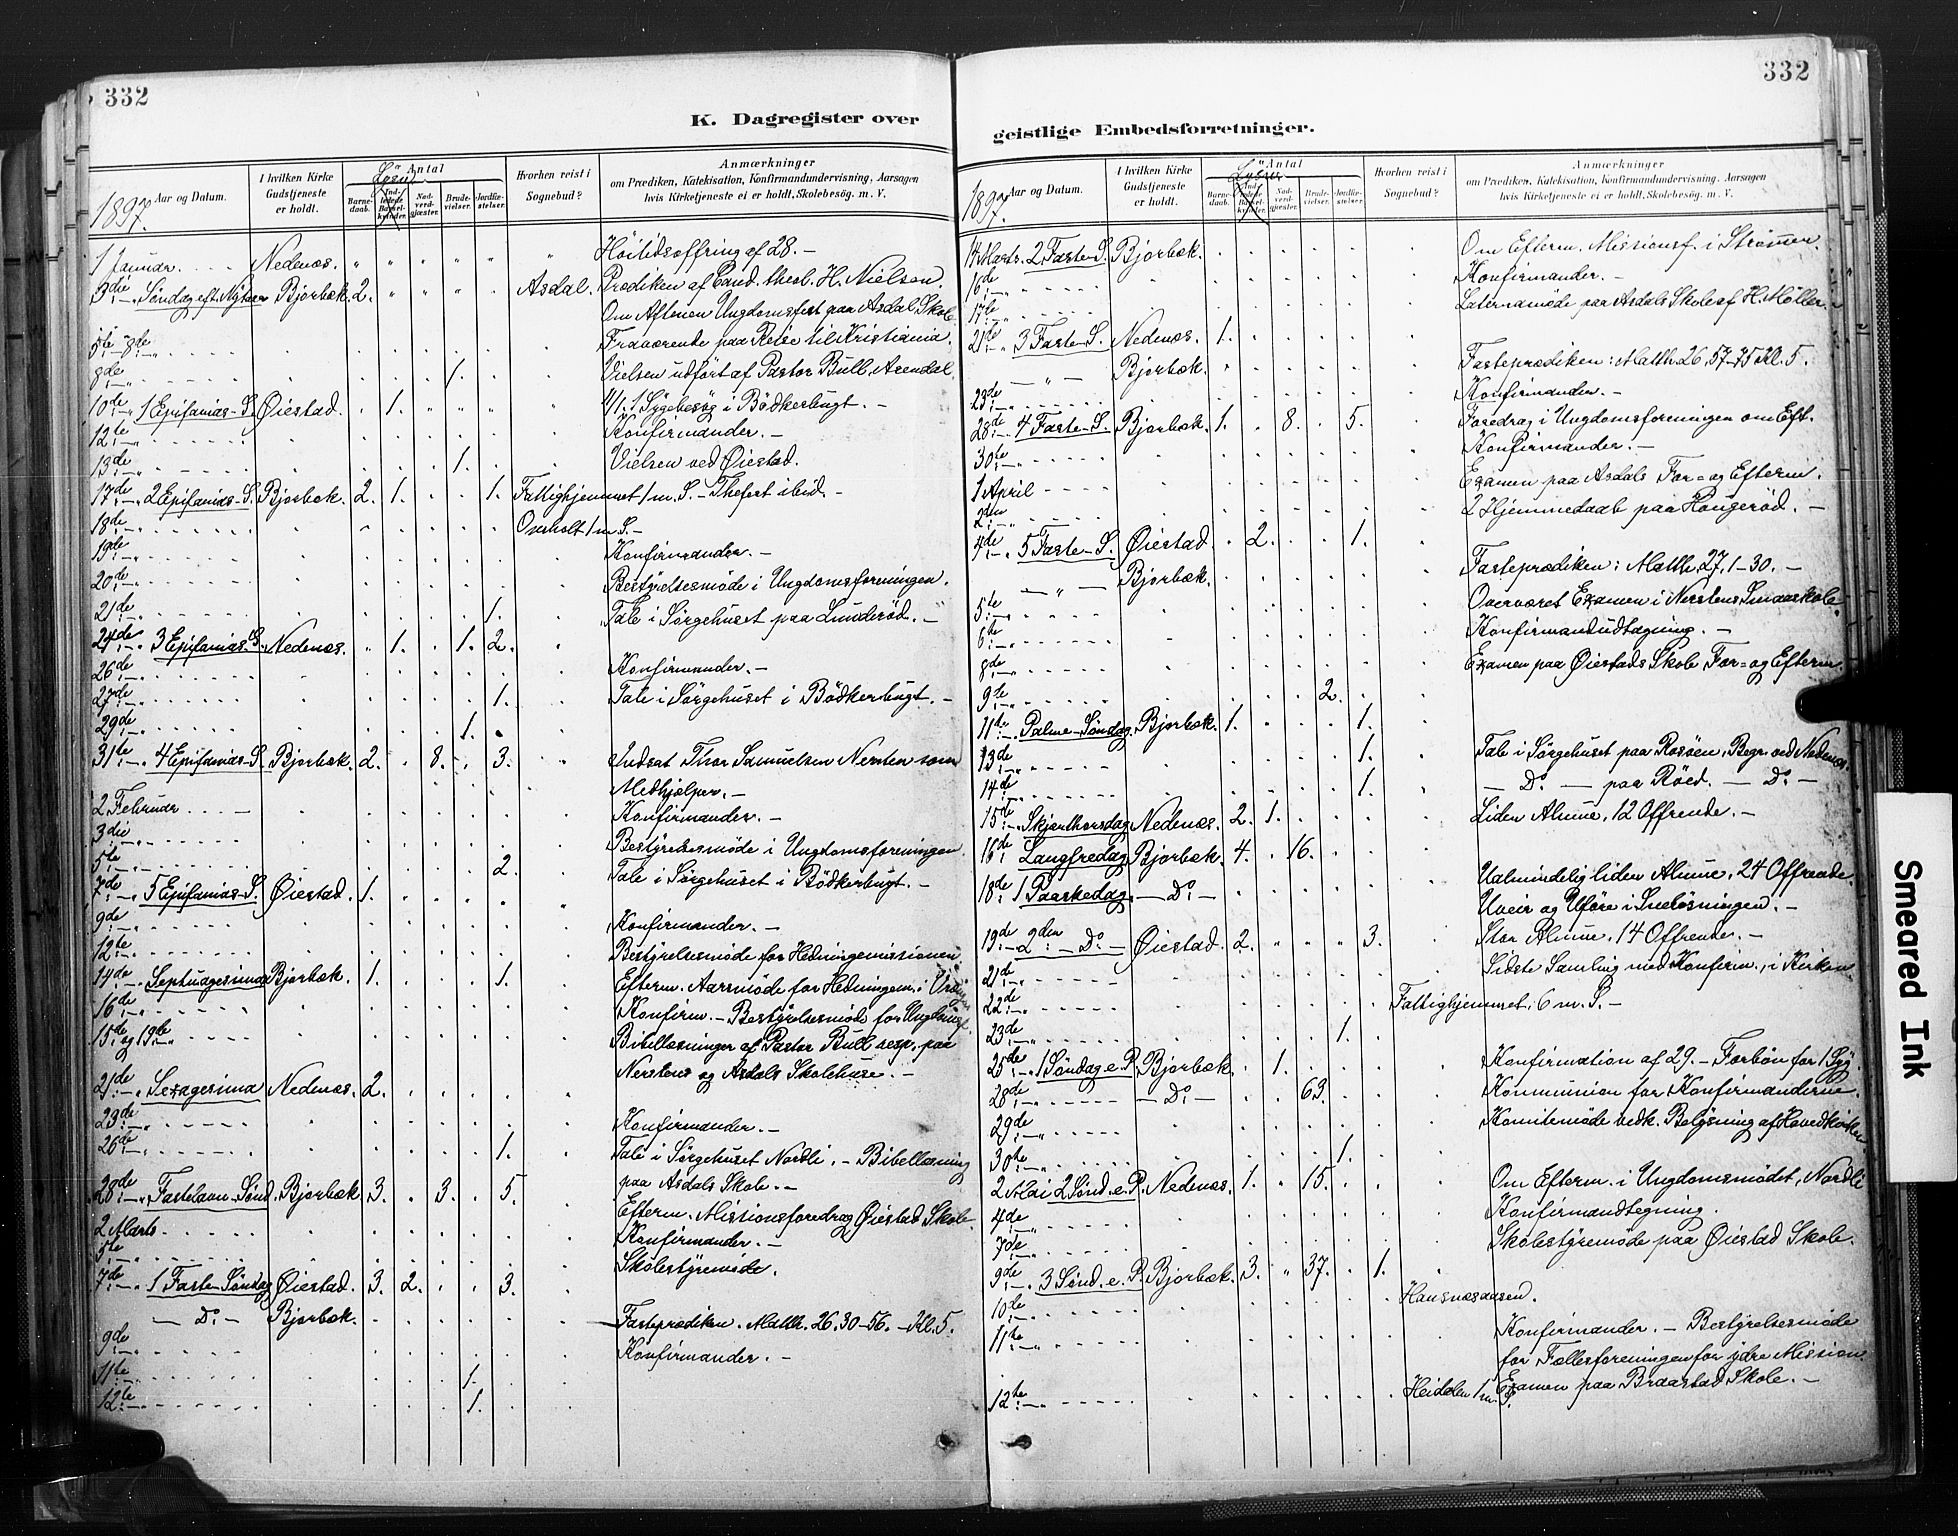 332
K. Dagregister over
Aar og Datum.
1897.
I hvilken Kirke Gudstjeneste er holdt.
Antal
Lysn.
Barnedaab.
Indledede Barselkvinder.
Nadverdgjæster.
Brudevielser.
Jordfæstelser.
Hvorhen reist i Sognebud?
Anmærkninger
om Prædiken, Katekisation, Konfirmandundervisning, Aarsagen
hvis Kirketjeneste ei er holdt, Skolebesøg. m. V.
1 Januar. Nedenæs. " " " " " " Höitidsoffring af 28. -
3die Søndag eft. Nytaar Bjorbæk. 2. " " " " Asdal. Prædiken af Cand. theol. H. Nielsen.
Om Aftenen Ungdomsfest paa Asdal Skole.
5te-8de Fraværende paa Reise til Kristiania.
8de 1. Vielsen udført af Pastor Bull, Arendal.
10de 1 Epifanias-S. Øiestad. 1. 1 Sygebesøg i Bödkerbugt. -
12te Konfirmander. -
13de 1. Vielsen ved Øiestad.
17de 2 Epifanias-S. Bjorbæk. 2. 1. 1. Fattighjemmet 1 m. S. -
18de Omholt 1 m S. -
19de Konfirmander. -
20de Bestyrelsesmøde i Ungdomsforeningen.
21de 1. Tale i Sørgehuset paa Lunderød. -
24de 3 Epifanias-S. Nedenæs. " 1. 1. 2.
26de Konfirmander. -
27de 1. Tale i Sørgehuset i Bödkerbugt. -
29de 1.
31te 4 Epifanias-S. Bjorbæk. 2. 8. 3. Indsat Thor Samuelsen Nersten som
Medhjælper. -
2 Februar Konfirmander. -
3die Bestyrelsesmøde i Ungdomsforeningen.
5te 2. Tale i Sørgehuset i Bödkerbugt. -
7de 5 Epifanias-S. Øiestad. 1.
9de Konfirmander. -
12te Bestyrelsesmøde for Hedningemissionen
14de Septuagesima Bjorbæk. 1. 1. Efterm. Aarsmøde for Hedningem. i
16de Konfirm. - Bestyrelsesmøde for Ungdomsf.
15de og 19de Bibellæsninger af Pastor Bull resp. paa
Nerstens og Asdals Skolehuse. -
21de Sexagesima Nedenæs. 2.
23de Konfirmander. -
26de 1. Tale i Sørgehuset Nordli. - Bibellæsning
paa Asdals Skole. -
28de Fastelavn-Sønd. Bjorbæk 3. 3. 5. Efterm. Missionsforedrag Øiestad Skole.
2 Marts. Konfirmander. -
5te Skolestyremøde.
7de 1 Faste-Søndag Øiestad. 3. 2. 3.
- Do. - Bjorbæk. Fasteprædiken. Matth. 26. 30-56. - Kl. 5.
9de Konfirmander. -
11te 1.
12te 1.
332
geistlige Embedsforretninger.
Aar og Datum.
1897.
I hvilken Kirke Gudstjeneste er holdt.
Antal
Barnedaab.
Indledede Barselkvinder.
Nadverdgjæster.
Brudevielser.
Jordfæstelser.
Hvorhen reist i Sognebud?
Anmærkninger
om Prædiken, Katekisation, Konfirmandundervisning. Aarsagen
hvis Kirketjeneste ei er holdt, Skolebesøg m. V.
14 Marts. 2 Faste-S. Bjorbæk. Om Efterm. Missionsf. i Strømmen.
16de Konfirmander. -
17de Laternamøde paa Asdals Skole af H. Møller.
21de 3 Faste-S. Nedenæs. 1.
- " - Bjorbæk. Fasteprædiken: Matth. 26, 57-75 Kl. 5.
23de Konfirmander. -
28de 4 Faste-S. Bjorbæk. 1. 8. 5. Foredrag i Ungdomsforeningen om Eft.
30te Konfirmander. -
1 April Examen paa Asdals For= og Efterm.
2den 2 Hjemmedaab paa Haugerød. -
4de 5 Faste-S. Øiestad. 2. 1.
- " - Bjorbæk. Fasteprædiken: Matth. 27, 1-30. -
5te Overværet Examen i Nerstens Smaaskole.
6te Konfirmandudtagning. -
8de Examen paa Øiestads Skole For= og Efterm.
9te 2.
11te Palme-Søndag. Bjorbæk. 1. 1.
13de 1. Tale i Sørgehuset paa Rosøen. Begr. ved Nedenæs.
14de 1. - Do. - paa Røed. - Do. -
15de Skjærthorsdag Nedenæs. 2. 1. Liden Almue. 12 Offrende. -
16de Langfredag Bjorbæk. 4. 16.
18de 1 Paaskedag. - Do. - Ualmindelig liden Almue. 24 Offrende.
Uveir og Uføre i Sneløsningen. -
19de 2den - Do. - Øiestad. 2. 3. Stor Almue. 14 Offrende. -
21de Sidste Samling med Konfirm. i Kirken.
22de Fattighjemmet. 6 m. S. -
23de 1.
25de 1 Søndag e. P. Bjorbæk. 1. Konfirmation af 29. - Forbøn for 1 Syg.
28de - Do. - 63. Kommunion for Konfirmanderne.
29de Komitemøde vedk. Belysning af Hovedkirken
30te 1.
2 Mai 2 Sønd. e. P. Nedenæs. 1. 15. Om Efterm. i Ungdomsmødet, Nordli
4de Konfirmandtegning.
7de Skolestyremøde paa Øiestad Skole.
9de 3 Sønd. e. P. Bjorbæk. 3. 37. 1.
10de Hansnæsaasen.
11te Konfirmander. - Bestyrelsesmøde
for Fællesforeningen for ydre Mission.
12te Heidalen 1 m S. Examen paa Braastad Skole. -
Smeared Ink